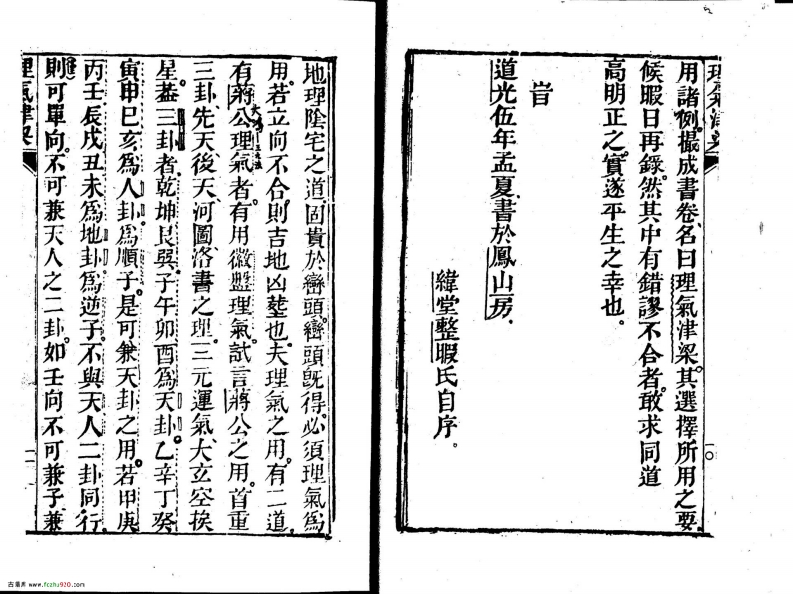 用諸例撮成書卷名曰理氣津梁其選擇所用之要
候暇日再錄然其中有錯謬不合者敢求同道
高明正之實遂平生之幸也
旹
道光伍年孟夏書於鳳山房
緯堂整暇氏自序
地理陰宅之道固貴於巒頭巒頭既得必須理氣為
用若立向不合則吉地凶塟也夫理氣之用有二道
有蔣公理氣者有用徽盤理氣試言蔣公之用首重
三卦先天後天河圖洛書之理三元運氣大玄空挨
星葢三卦者乾坤艮巽子午卯酉為天卦乙辛丁癸
寅申巳亥為人卦為順子是可兼天卦之用若甲庚
丙壬辰戌丑未為地卦為逆子不與天人二卦同行
則可單向不可兼天人之二卦如壬向不可兼子兼
理氣津梁
古易库 www.fozhu920.com